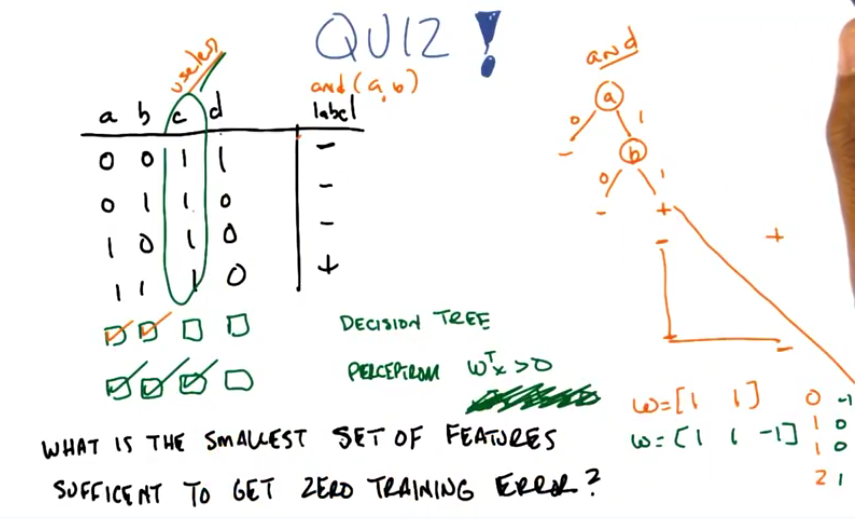 QUIZ!
useless
and(a,b)
a b c d label
0 0 1 1 -
0 1 1 0 -
1 0 1 0 -
1 1 1 0 +
DECISION TREE
PERCEPTRON wᵀx > 0
WHAT IS THE SMALLEST SET OF FEATURES
SUFFICENT TO GET ZERO TRAINING ERROR?
and
a
0 1
- b
0 1
- +
- +
+ -
w=[1 1]
w=[1 1 -1]
0 -1
1 0
1 0
2 1